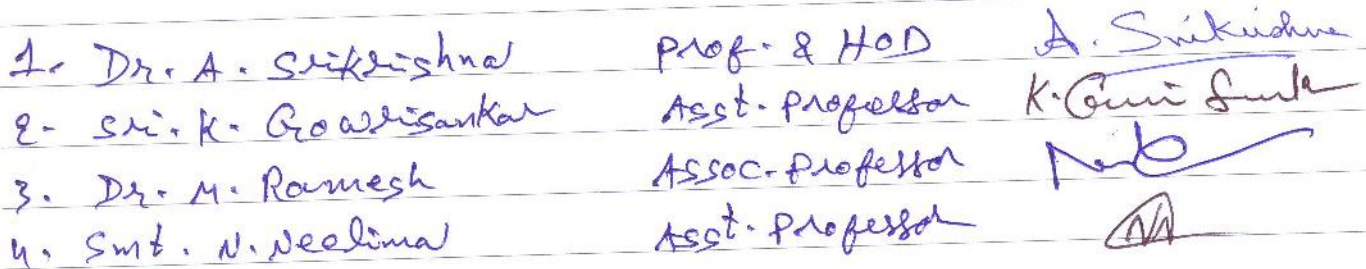 1. Dr. A. Srikrishna Prof. & HOD A. Srikrishna
2- Sri. K. Gowrisankar Asst. Professor K. Gowri Sank
3. Dr. M. Ramesh Assoc. Professor
4. Smt. N. Neelima Asst. Professor